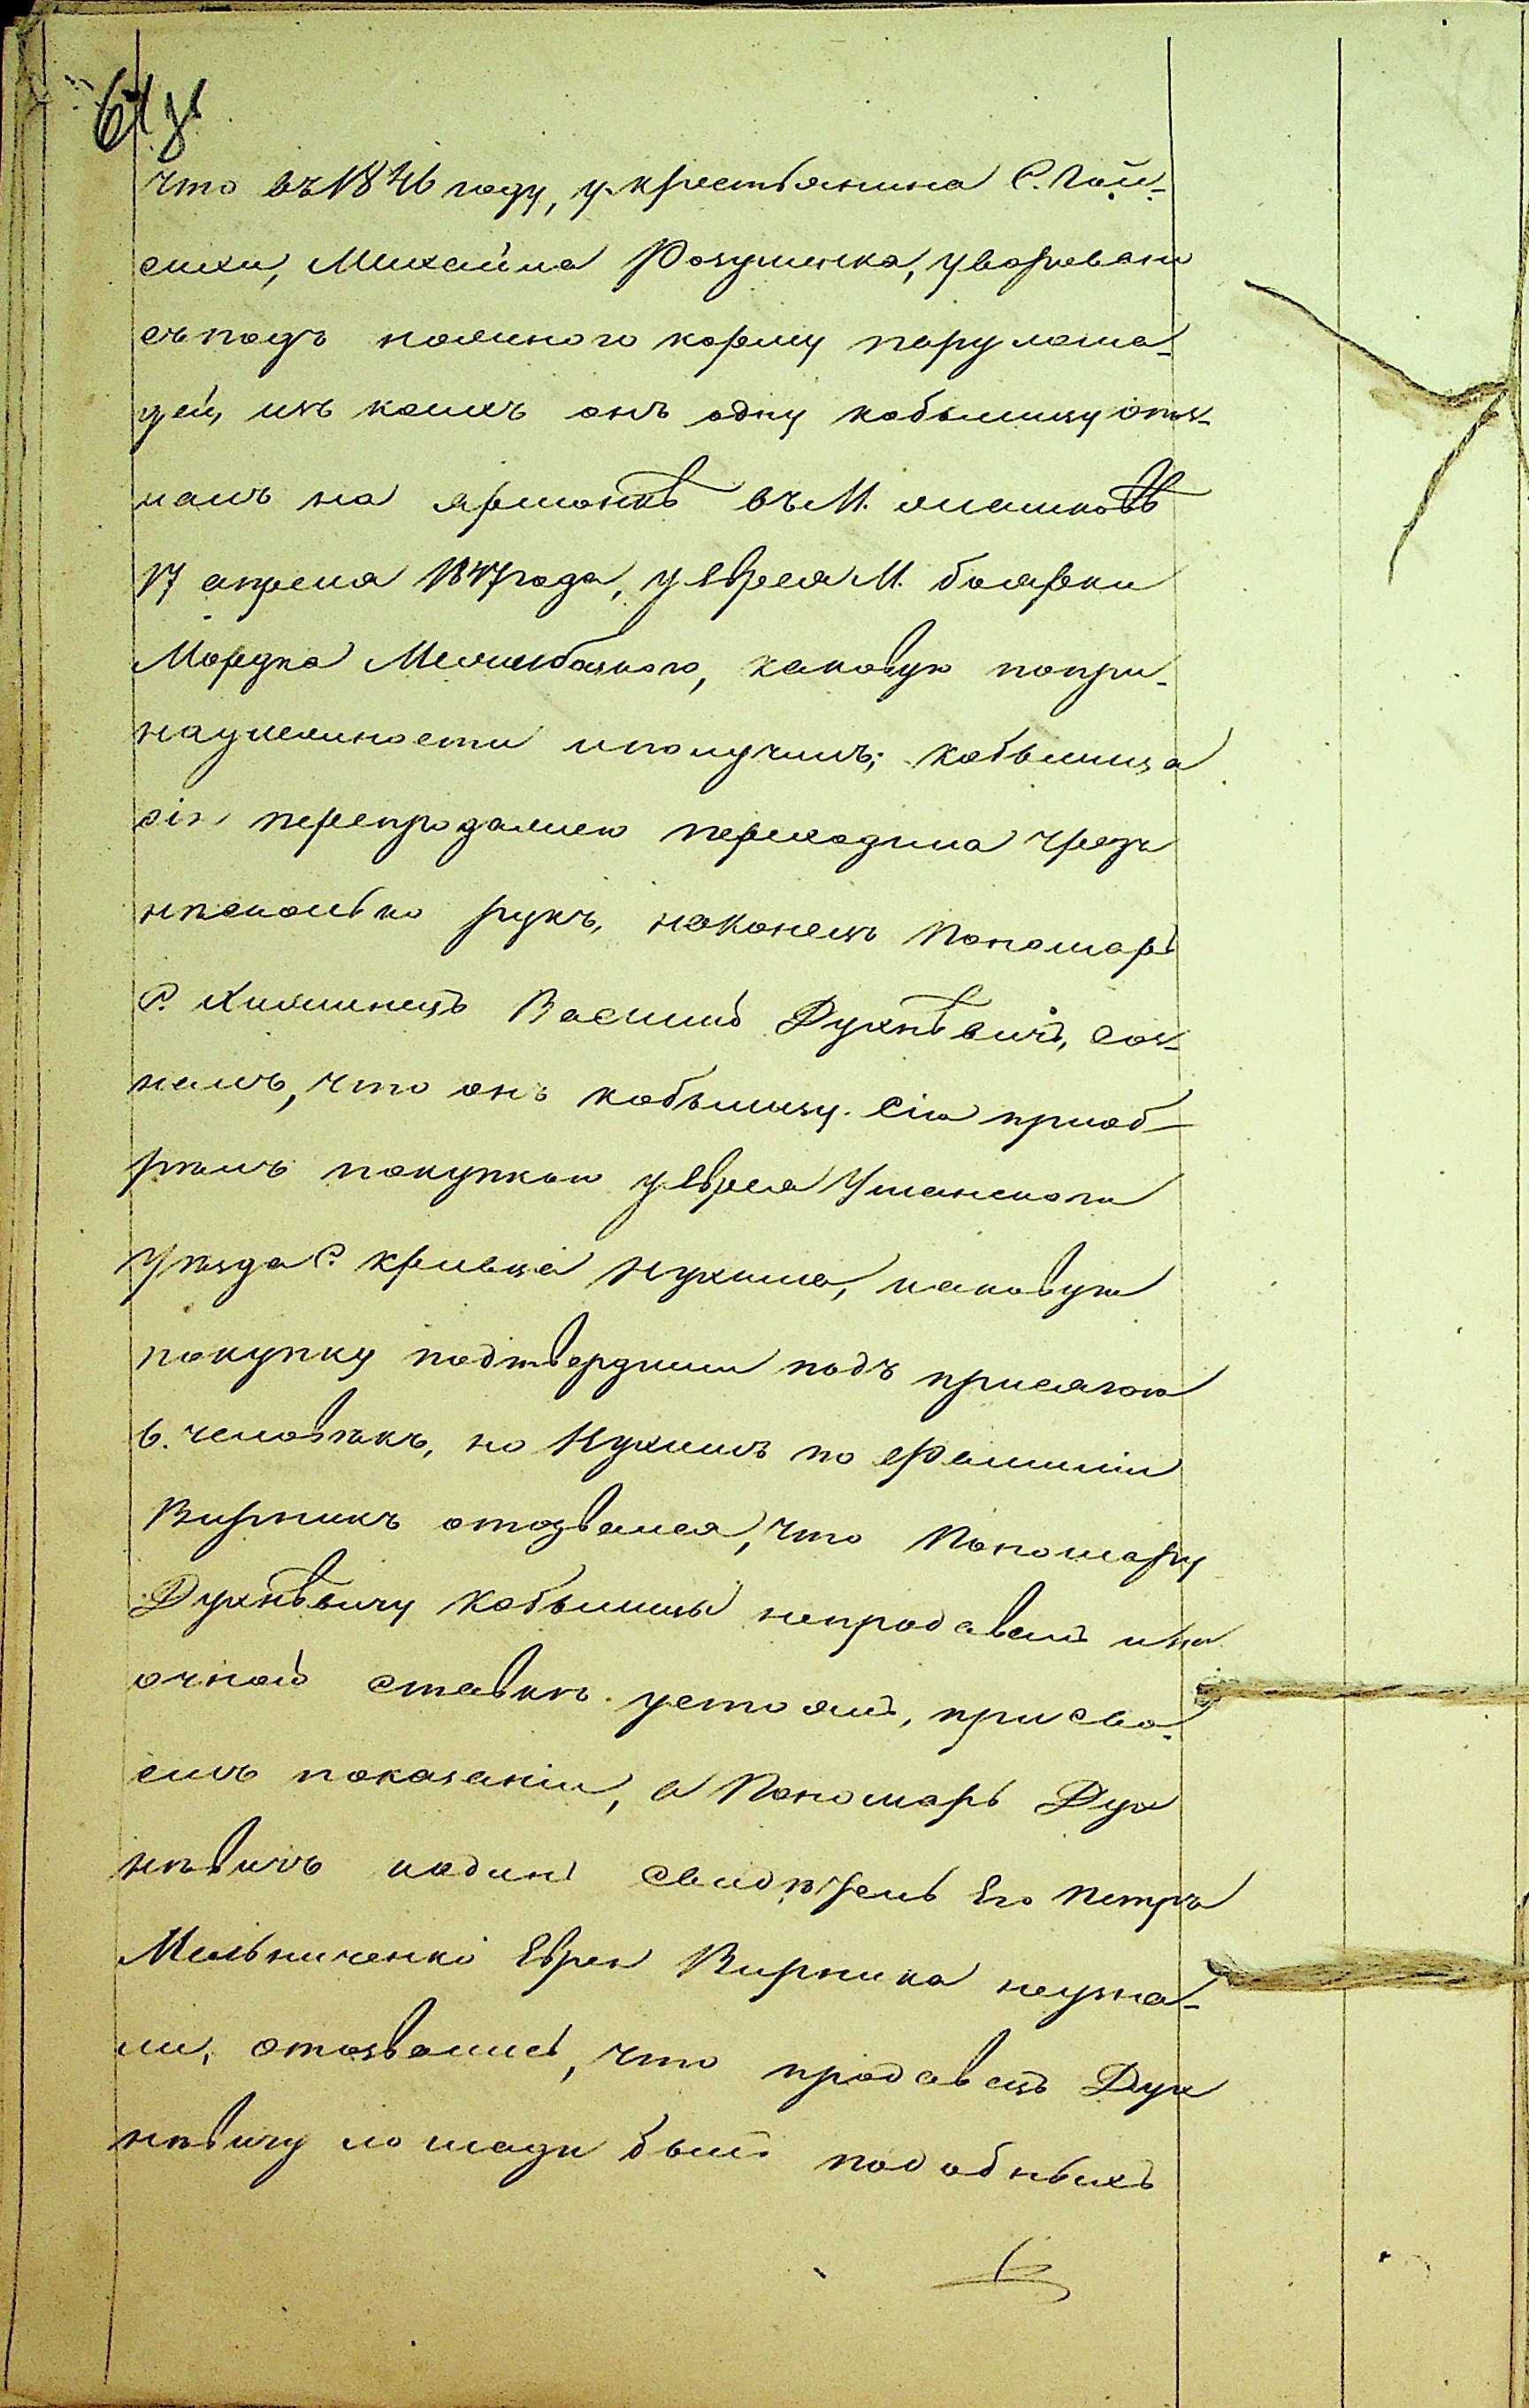 61 об
что въ 1846 году, у крестьянина С. Пой-
сихи, Михайла Розуменка, уворовано
съ подъ полеваго корму пару лоша-
дей, изъ коихъ онъ одну кобылицу опоз-
налъ на ярмонкѣ въ М. Ивашковѣ
17 апреля 1847 года, у еврея М. боярки
Мордка Межибозкого, каковую попри-
надлежности и получилъ; кобылица
сія перепродажею переходила чрезъ
нѣсколько рукъ, наконецъ Пономарь
С. Кислинецъ Василій Духнѣвичъ, соз-
налъ, что онъ кобылицу сію приоб-
рѣлъ покупкою у еврея Уманского
уѣзда С. кривца Нухима, каковую
покупку подтвердили подъ присягою
6. человѣкъ, но Нухимъ по Фамиліи
Вирникъ отозвался, что Пономарю
Духнѣвичу кобылицы непродавалъ и на
очной ставкѣ устоялъ, при сво-
емъ показаніи, а Пономарь Дух
нѣвичъ иодинъ свидѣтель Его Петръ
Мельниченко Еврея Вирника неузна-
ли, отозвались, что продавецъ Дух
нѣвичу лошади былъ подобныхъ